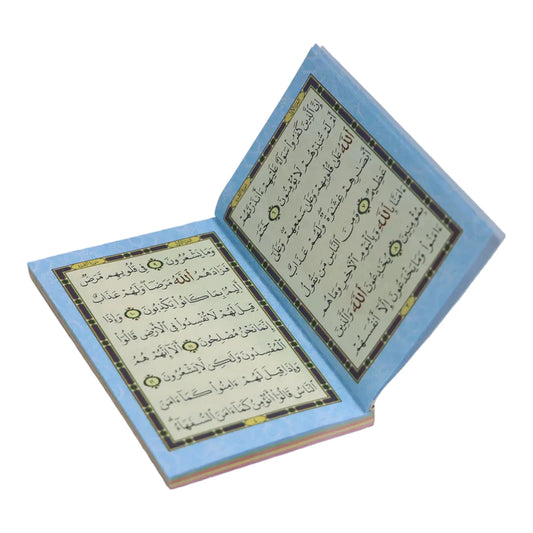 إِنَّ ٱلَّذِينَ كَفَرُوا۟ سَوَآءٌ عَلَيْهِمْ ءَأَنذَرْتَهُمْ
أَمْ لَمْ تُنذِرْهُمْ لَا يُؤْمِنُونَ ٦ خَتَمَ
ٱللَّهُ عَلَىٰ قُلُوبِهِمْ وَعَلَىٰ سَمْعِهِمْ وَعَلَىٰٓ
أَبْصَٰرِهِمْ غِشَٰوَةٌ وَلَهُمْ عَذَابٌ
عَظِيمٌ ٧ وَمِنَ ٱلنَّاسِ مَن يَقُولُ
ءَامَنَّا بِٱللَّهِ وَبِٱلْيَوْمِ ٱلْءَاخِرِ وَمَا هُم
بِمُؤْمِنِينَ ٨ يُخَٰدِعُونَ ٱللَّهَ وَٱلَّذِينَ
ءَامَنُوا۟ وَمَا يَخْدَعُونَ إِلَّآ أَنفُسَهُمْ
وَمَا يَشْعُرُونَ ٩ فِى قُلُوبِهِم مَّرَضٌ
فَزَادَهُمُ ٱللَّهُ مَرَضًا وَلَهُمْ عَذَابٌ
أَلِيمٌۢ بِمَا كَانُوا۟ يَكْذِبُونَ ١٠ وَإِذَا
قِيلَ لَهُمْ لَا تُفْسِدُوا۟ فِى ٱلْأَرْضِ قَالُوٓا۟
إِنَّمَا نَحْنُ مُصْلِحُونَ ١١ أَلَآ إِنَّهُمْ هُمُ
ٱلْمُفْسِدُونَ وَلَٰكِن لَّا يَشْعُرُونَ ١٢
وَإِذَا قِيلَ لَهُمْ ءَامِنُوا۟ كَمَآ ءَامَنَ
ٱلنَّاسُ قَالُوٓا۟ أَنُؤْمِنُ كَمَآ ءَامَنَ ٱلسُّفَهَآءُ